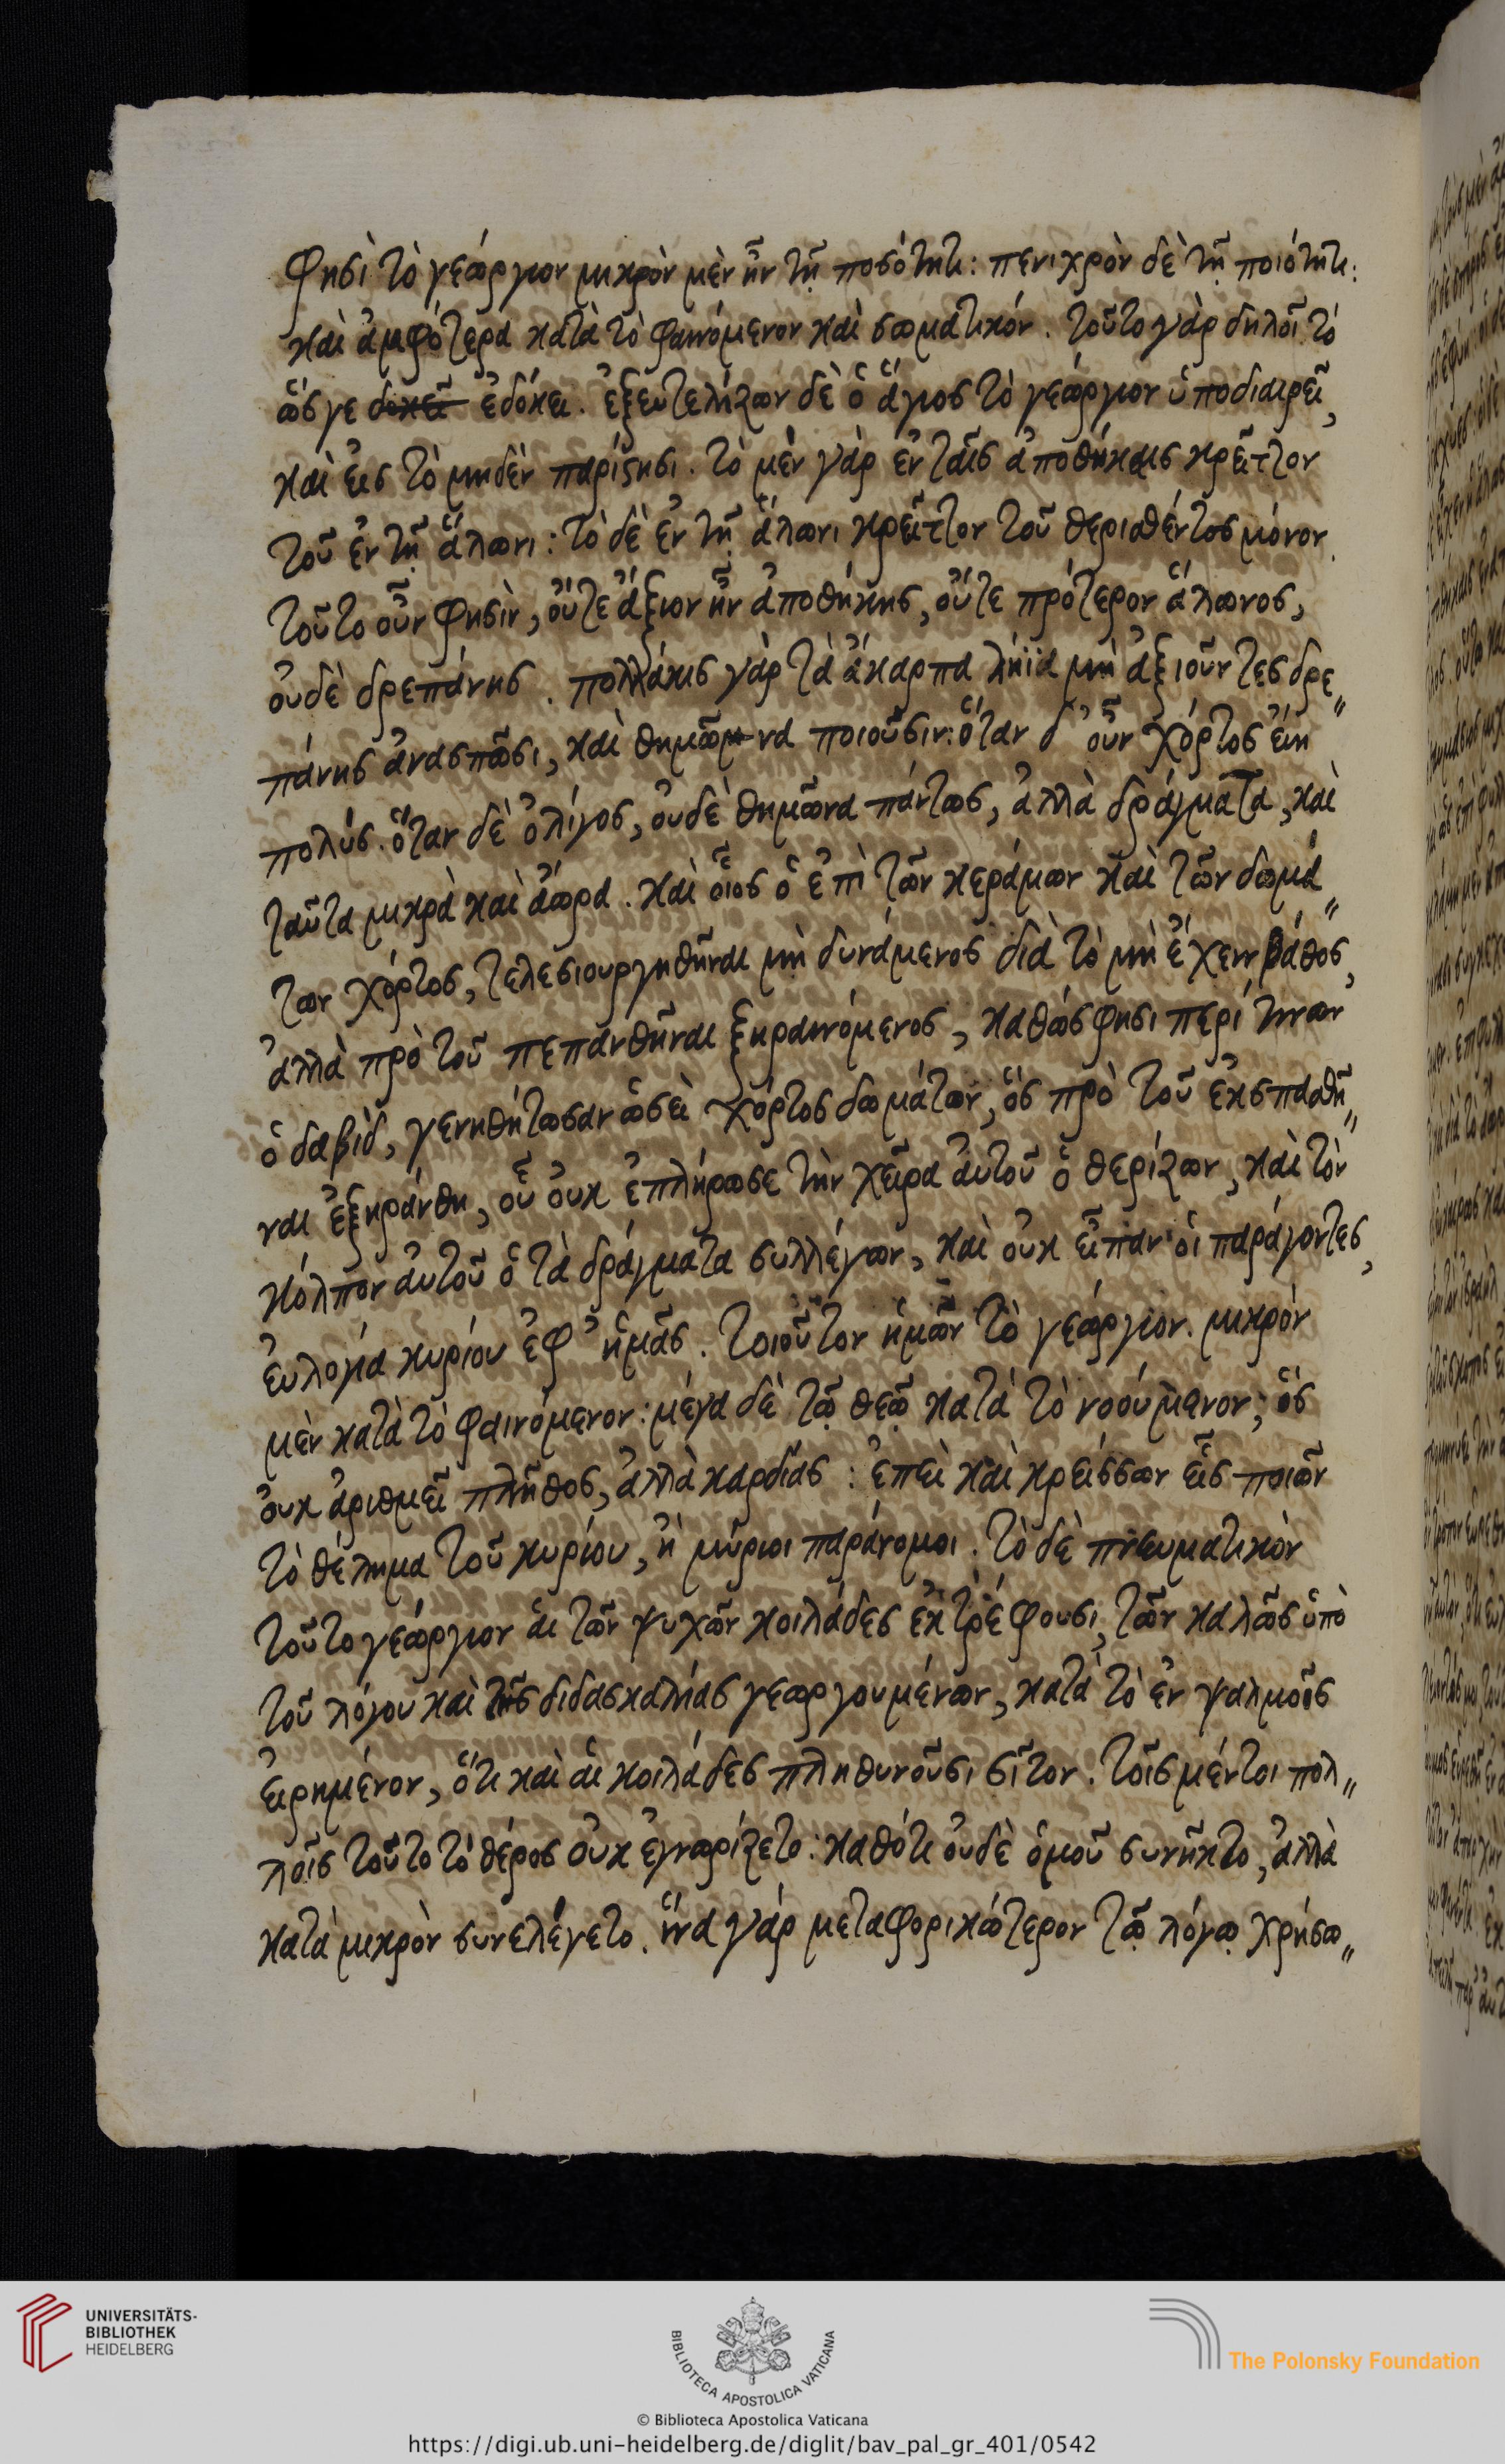 Φησὶ τὸ γεώργιον μικρὸν μὲν ἦν τῇ ποσότητι: πενιχρὸν δὲ τῇ ποιότητι:
καὶ ἀμφότερα κατὰ τὸ φαινόμενον καὶ σωματικόν. τοῦτο γὰρ δηλοῖ τὸ
ὥς γε δοκεῖ ἐδόκει. ἐξευτελίζων δὲ ὁ ἅγιος τὸ γεώργιον ὑποδιαιρεῖ,
καὶ εἰς τὸ μηδὲν παρίστησι. τὸ μὲν γὰρ ἐν ταῖς ἀποθήκαις κρεῖττον
τοῦ ἐν τῇ ἅλωνι: τὸ δὲ ἐν τῇ ἅλωνι κρεῖττον τοῦ θερισθέντος μόνον.
τοῦτο οὖν φησὶν, οὔτε ἄξιον ἦν ἀποθήκης, οὔτε πρότερον ἅλωνος,
οὐδὲ δρεπάνης. πολλάκις γὰρ τὰ ἄκαρπα λήϊα μὴ ἀξιοῦντες δρε„
πάνης ἀνασπῶσι, καὶ θημῶνα ποιοῦσιν: ὅταν δ' οὖν χόρτος εἴη
πολύς. ὅταν δὲ ὀλίγος, οὐδὲ θημῶνα πάντως, ἀλλὰ δράγματα, καὶ
ταῦτα μικρὰ καὶ ἄωρα. καὶ οἷος ὁ ἐπὶ τῶν κεράμων καὶ τῶν δωμά„
των χόρτος, τελεσιουργηθῆναι μὴ δυνάμενος διὰ τὸ μὴ ἔχειν βάθος,
ἀλλὰ πρὸ τοῦ πεπανθῆναι ξηραινόμενος, καθώς φησι περί τινων
ὁ δαβὶδ, γενηθήτωσαν ὡσεὶ χόρτος δωμάτων, ὃς πρὸ τοῦ ἐκσπασθῆ„
ναι ἐξηράνθη, οὗ οὐκ ἐπλήρωσε τὴν χεῖρα αὐτοῦ ὁ θερίζων, καὶ τὸν
κόλπον αὐτοῦ ὁ τὰ δράγματα συλλέγων, καὶ οὐκ εἶπαν οἱ παράγοντες,
εὐλογία κυρίου ἐφ' ἡμᾶς. τοιοῦτον ἡμῶν τὸ γεώργιον. μικρὸν
μὲν κατὰ τὸ φαινόμενον: μέγα δὲ τῷ θεῷ κατὰ τὸ νοούμενον; ὃς
οὐκ ἀριθμεῖ πλῆθος, ἀλλὰ καρδίας: ἐπεὶ καὶ κρείσσων εἷς ποιῶν
τὸ θέλημα τοῦ κυρίου, ἢ μύριοι παράνομοι. τὸ δὲ πνευματικὸν
τοῦτο γεώργιον αἱ τῶν ψυχῶν κοιλάδες ἐκτρέφουσι, τῶν καλῶς ὑπὸ
τοῦ λόγου καὶ τῆς διδασκαλίας γεωργουμένων, κατὰ τὸ ἐν ψαλμοῖς
εἰρημένον, ὅτι καὶ αἱ κοιλάδες πληθυνοῦσι σῖτον. τοῖς μέντοι πολ„
λοῖς τοῦτο τὸ θέρος οὐκ ἐγνωρίζετο: καθότι οὐδὲ ὁμοῦ συνῆκτο, ἀλλὰ
κατὰ μικρὸν συνελέγετο. ἵνα γάρ μεταφορικώτερον τῷ λόγῳ χρήσω„
UNIVERSITÄTS-
BIBLIOTHEK
HEIDELBERG
BIBLIOTECA APOSTOLICA VATICANA
The Polonsky Foundation
© Biblioteca Apostolica Vaticana
https://digi.ub.uni-heidelberg.de/diglit/bav_pal_gr_401/0542